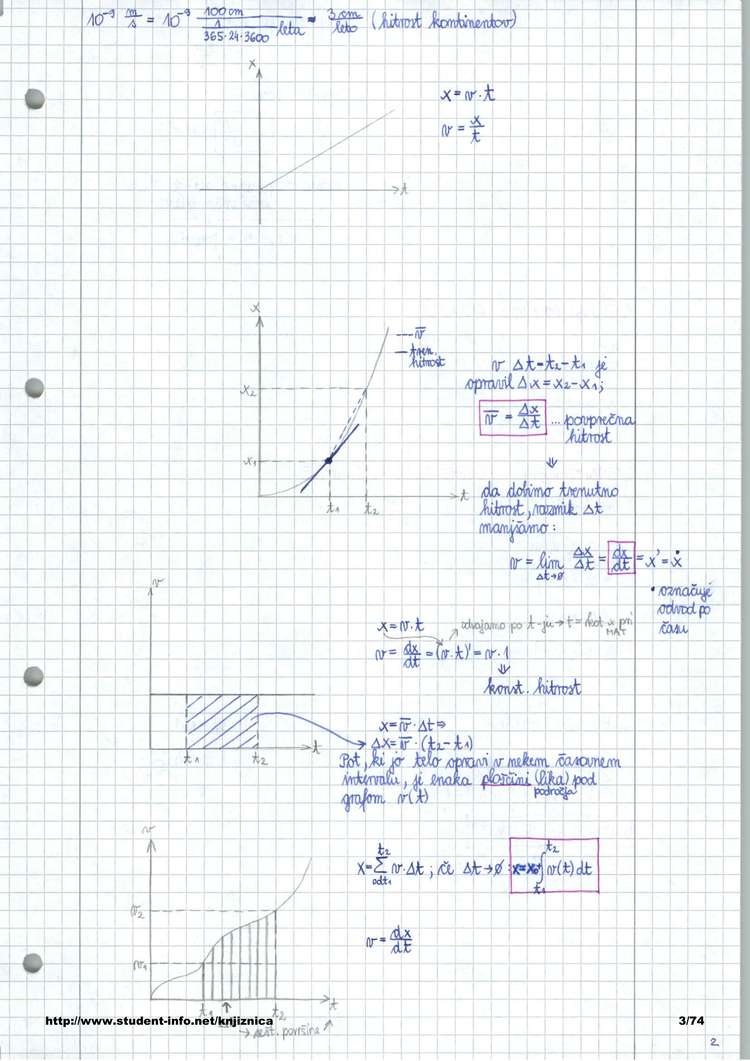 10⁻⁹ m/s = 10⁻⁹ 100cm / (1/(365·24·3600) leta) ≈ 3cm/leto (hitrost kontinentov)
x
x = v·t
v = x/t
t
x
--- v̅
— tren. hitrost
x₂
x₁
t₁ t₂
t
v Δt=t₂-t₁ je
opravil Δx=x₂-x₁;
v̅ = Δx/Δt ... povprečna
hitrost
⇓
da dobimo trenutno
hitrost, razmik Δt
manjšamo:
v = lim Δt→0 Δx/Δt = dx/dt = x' = ẋ
• označuje
odvod po
času
v
t₁ t₂
t
x=v·t
odvajamo po t-ju → t = kot x pri MAT
v = dx/dt = (v·t)' = v·1
⇓
konst. hitrost
x=v̅·Δt ⇒
Δx=v̅·(t₂-t₁)
Pot, ki jo telo opravi v nekem časovnem
intervalu, je enaka ploščini (lika) pod
področja
grafom v(t)
v
v₂
v₁
t₁ t₂
t
x=Σ odt₁ t₂ v·Δt ; če Δt→0 : x=x₀+∫ t₁ t₂ v(t)dt
v = dx/dt
→ sešt. površine
http://www.student-info.net/knjiznica
3/74
2